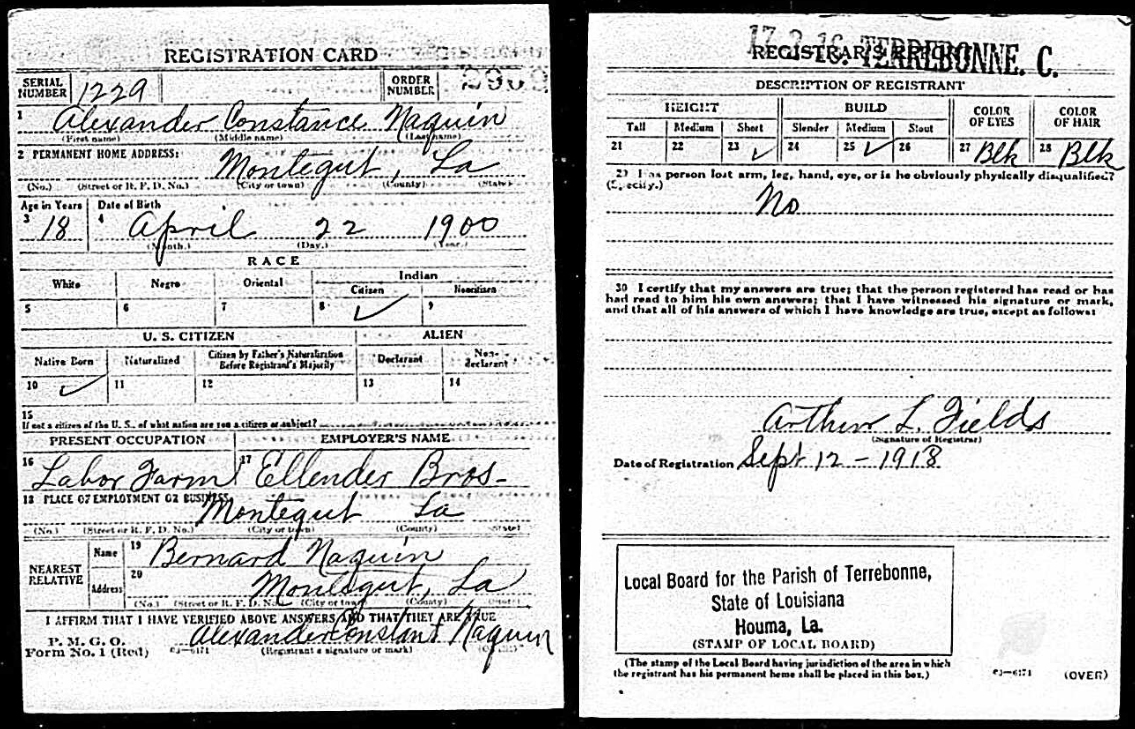 REGISTRATION CARD
SERIAL NUMBER 1229 ORDER NUMBER 2989
1 Alexander Constance Naquin
(First name) (Middle name) (Last name)
2 PERMANENT HOME ADDRESS:
Montegut, La
(No.) (Street or R. F. D. No.) (City or town) (County) (State)
Age in Years Date of Birth
3 18 4 April 22 1900
(Month.) (Day.) (Year.)
RACE
White Negro Oriental Indian
Citizen Noncitizen
5 6 7 8 ✓ 9
U. S. CITIZEN ALIEN
Native Born Naturalized Citizen by Father's Naturalization Before Registrant's Majority Declarant Non-declarant
10 ✓ 11 12 13 14
15
If not a citizen of the U. S., of what nation are you a citizen or subject?
PRESENT OCCUPATION EMPLOYER'S NAME
16 Labor Farm 17 Ellender Bros-
18 PLACE OF EMPLOYMENT OR BUSINESS
Montegut La
(No.) (Street or R. F. D. No.) (City or town) (County) (State)
NEAREST RELATIVE
Name 19 Bernard Naquin
Address 20 Montegut, La
(No.) (Street or R. F. D. No.) (City or town) (County) (State)
I AFFIRM THAT I HAVE VERIFIED ABOVE ANSWERS AND THAT THEY ARE TRUE
P. M. G. O.
Form No. 1 (Red) 03—6171 Alexander Constant Naquin
(Registrant's signature or mark) (OVER)
REGISTRAR'S REPORT
TERREBONNE. C.
DESCRIPTION OF REGISTRANT
HEIGHT BUILD COLOR OF EYES COLOR OF HAIR
Tall Medium Short Slender Medium Stout
21 22 23 ✓ 24 25 ✓ 26 27 Blk 28 Blk
29 Has person lost arm, leg, hand, eye, or is he obviously physically disqualified?
(Specify.)
No
30 I certify that my answers are true; that the person registered has read or has
had read to him his own answers; that I have witnessed his signature or mark,
and that all of his answers of which I have knowledge are true, except as follows:
Arthur L. Fields
(Signature of Registrar)
Date of Registration Sept 12 - 1918
Local Board for the Parish of Terrebonne,
State of Louisiana
Houma, La.
(STAMP OF LOCAL BOARD)
(The stamp of the Local Board having jurisdiction of the area in which
the registrant has his permanent home shall be placed in this box.)
03—6171 (OVER)